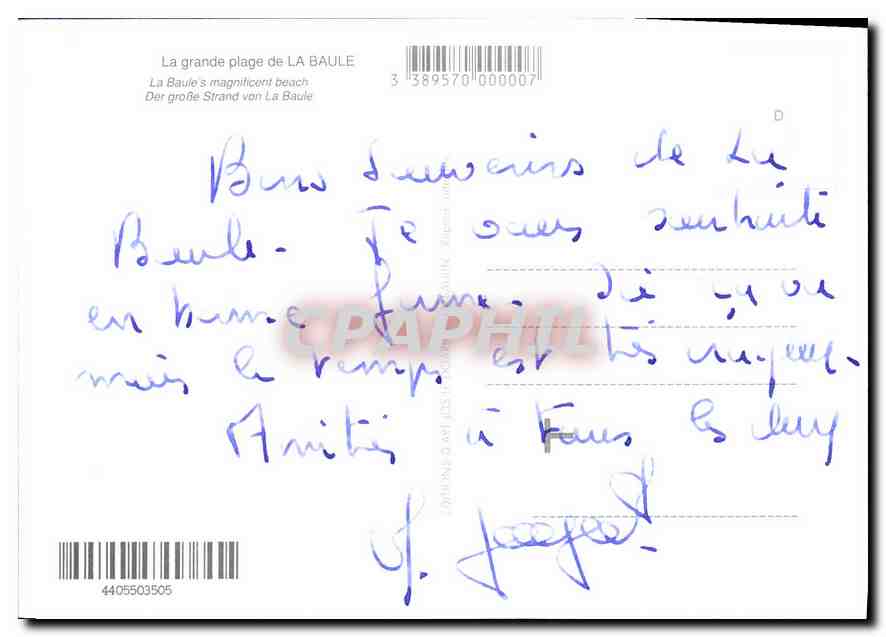 La grande plage de LA BAULE
La Baule's magnificent beach
Der große Strand von La Baule
3 389570 000007
D
Bons Souvenirs de La
Baule - Je vous souhaite
en bonne forme. Ici ça va
mais le temps est très
Amitiés à tous les deux
CPAPHIL
4405503505